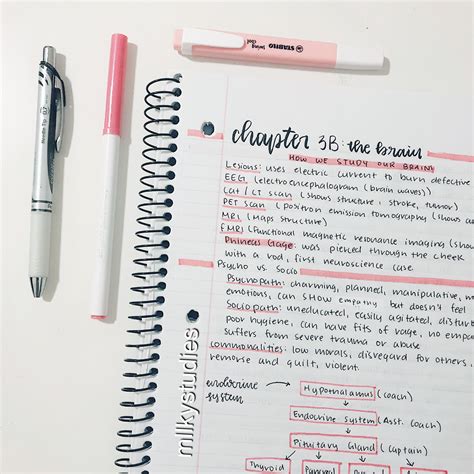 STABILO
swing cool
Needle Tip 0.7
chapter 3B: the brain
HOW WE STUDY OUR BRAIN
Lesions: uses electric current to burn defective
EEG (electroencephalogram (brain waves))
Cat / CT scan (shows structure, stroke, tumor)
PET scan (positron emission tomography (shows
MRI (Maps structure)
fMRI (functional magnetic resonance imaging (show
Phineas Gage: was pierced through the cheek
with a rod, first neuroscience case.
Psycho vs Socio
Psychopath: charming, planned, manipulative, no
emotions, can show empathy but doesn't feel
Sociopath: uneducated, easily agitated, disturb
poor hygiene, can have fits of rage, no empa
suffers from severe trauma or abuse
commonalities: low morals, disregard for others,
remorse and guilt, violent.
endocrine
system
Hypothalamus (coach)
Endocrine System (Asst. coach)
Pituitary Gland (captain)
Thyroid
milkystudies